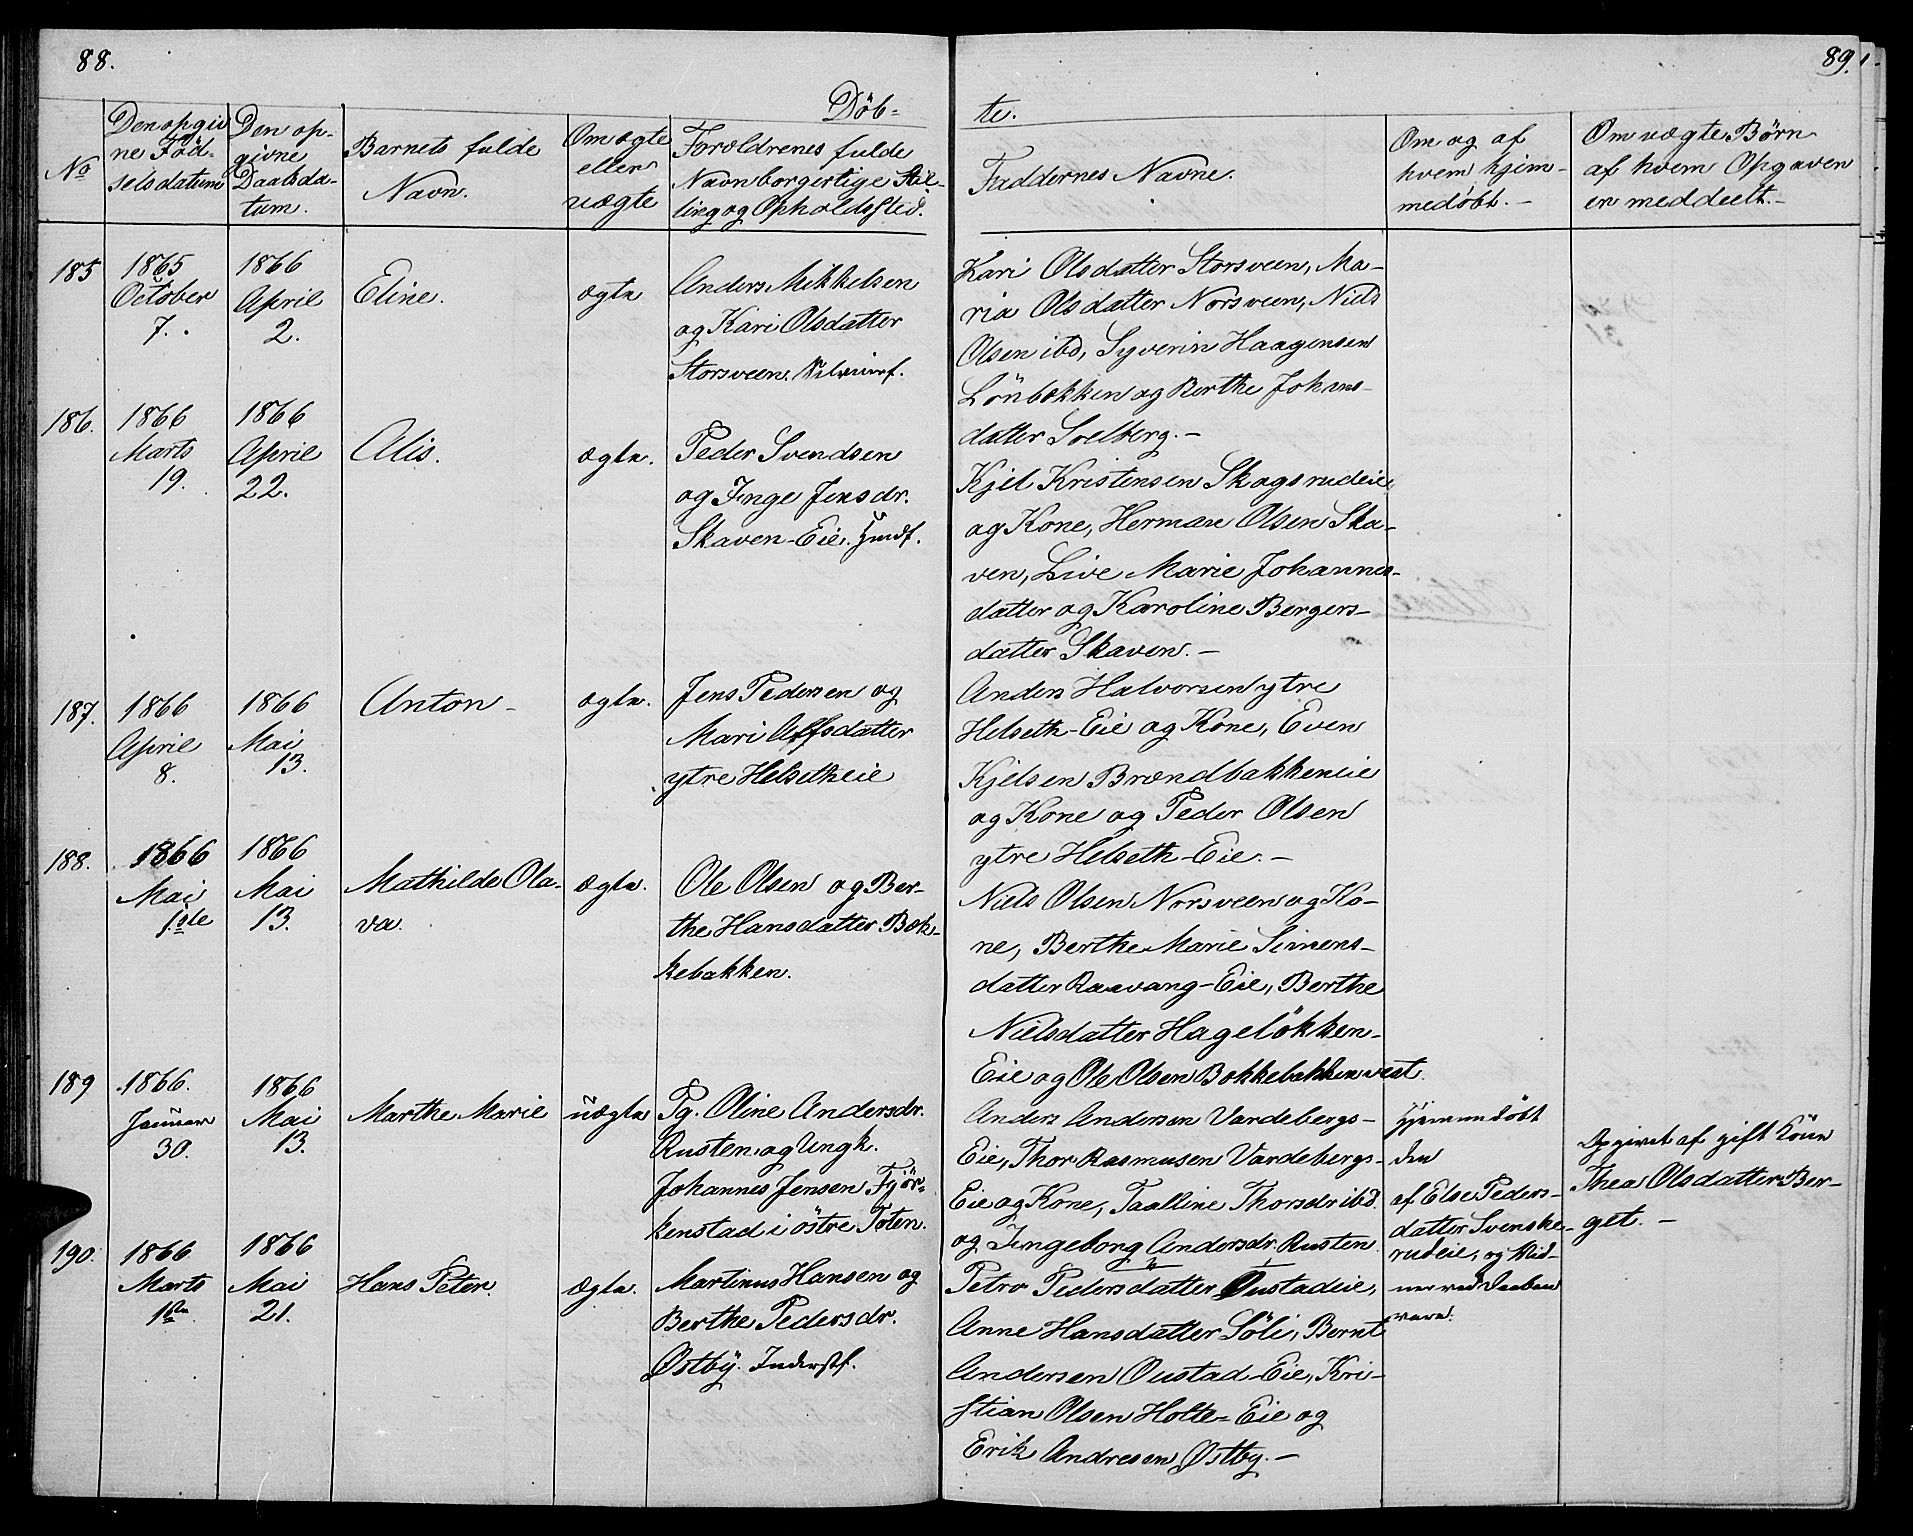 88.
89.
Döb-
te.
No
Den opgiv
ne Föd-
selsdatum
Den op-
givne
Daabsda-
tum.
Barnets fulde
Navn.
Om ægte
eller
uægte
Forældrenes fulde
Navn borgerlige Stil-
ling og Opholdssted.
Faddernes Navne.
Om og af
hvem hjem-
medöbt. -
Om uægte Börn
af hvem Opgaven
er meddeelt. -
185
1865
October
7.
1866
April
2.
Eline.
ægte
Anders Mikkelsen
og Kari Olsdatter
Storsveen.
Kari Olsdatter Storsveen, Ma-
ria Olsdatter Norsveen, Niels
Olsen ibd, Syverin Haagensen
Lönbækken og Berthe Johans-
datter Soelberg. -
186.
1866
Marts
19.
1866
April
22.
Alis.
ægte.
Peder Svendsen
og Inge Jensdr.
Skaven-Eie.
Kjel Kristensen Skogsrudeie
og Kone, Herman Olsen Ska-
ven, Live Marie Johannes-
datter og Karoline Bergers-
datter Skaven. -
187.
1866
April
8.
1866
Mai
13.
Anton -
ægte.
Jens Pedersen og
Mari Alfsdatter
ytre Helsetheie
Anders Halvorsen ytre
Helseth-Eie og Kone, Even
Kjelsen Brændbakkeneie
og Kone og Peder Olsen
ytre Helseth-Eie. -
188.
1866
Mai
1ste
1866
Mai
13.
Mathilde Ola-
va.
ægte.
Ole Olsen og Ber-
the Hansdatter Bæk-
kebakken.
Niels Olsen Norsveen og Ko-
ne, Berthe Marie Simens-
datter Raavang-Eie, Berthe
Nielsdatter Hagelökken-
Eie og Ole Olsen Bækkebakken vest.
189
1866.
Januar
30.
1866
Mai
13.
Marthe Marie
uægte
Pg. Oline Andersdr.
Rusten og Ungk.
Johannes Jensen Fjör-
kenstad i östre Toten.
Anders Andersen Vardebergs-
Eie, Thor Rasmusen Vardebergs-
Eie og Kone, Taalline Thorsdr ibd.
og Ingeborg Andersdr. Rusten.
Hjemmedöbt
den
af Else Peders-
datter Svenske-
rudeie, og Vid-
ner ved Daaben
vare.
Opgivet af gift Kone
Thea Olsdatter Ber-
get. -
190.
1866
Marts
1ste
1866
Mai
21.
Hans Peter
ægte.
Martinus Hansen og
Berthe Pedersdr.
Østby.
Petro Pedersdatter Oustadeie,
Anne Hansdatter Söli, Bernt
Andersen Oustad-Eie, Kri-
stian Olsen Holte-Eie og
Erik Andresen Østby. -